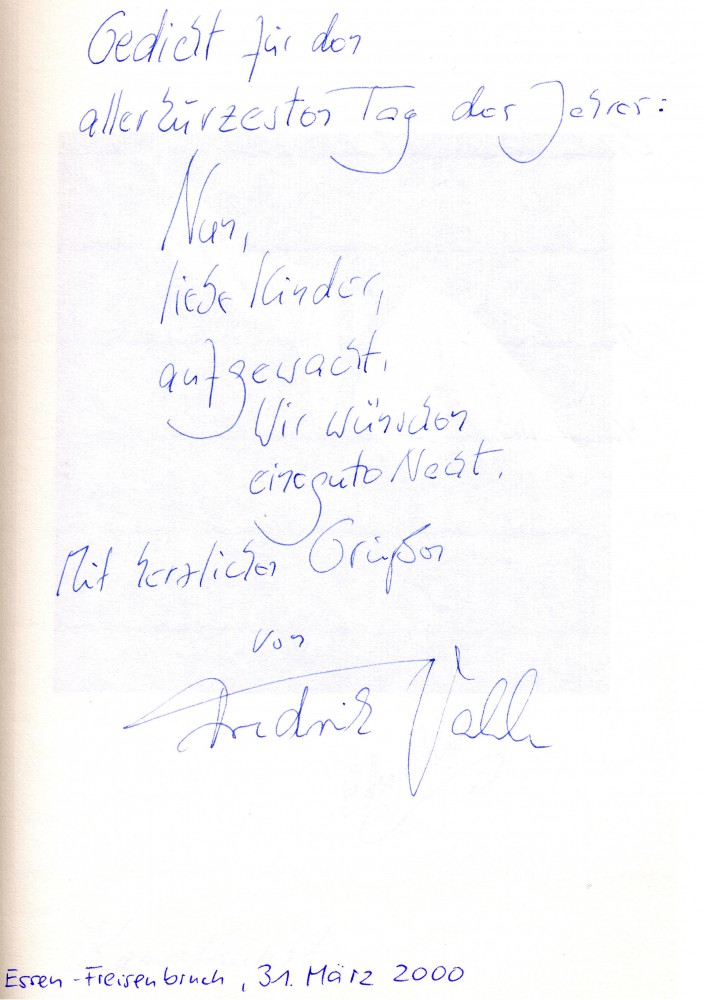 Gedicht für den
allerkürzesten Tag des Jahres:
Nun,
liebe Kinder,
aufgewacht.
Wir wünschen
eine gute Nacht.
Mit herzlichen Grüßen
von
Fredrik Vahle
Essen-Freisenbruch, 31. März 2000